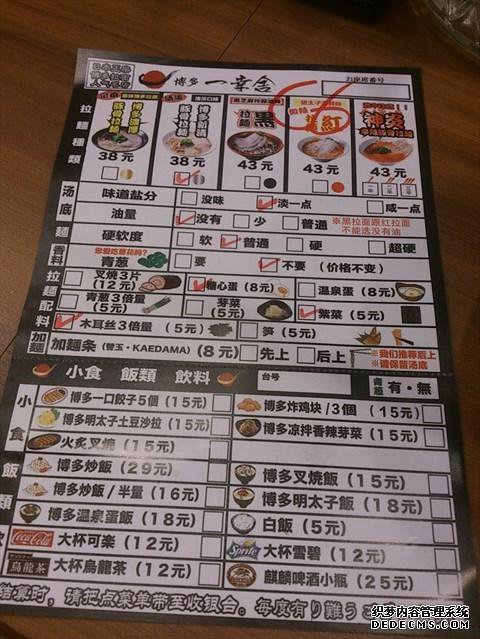 博多 一幸舎
お座席番号
拉麺種類
豚骨拉麺
博多濃厚
豚骨拉麺
博多
清淡口味
拉麺 黒
紅
神炎
38元
38元
43元
43元
43元
汤底
味道盐分 没味 淡一点 咸一点
油量 没有 少 普通 ※黑拉面跟红拉面
不能选没有油
麺
硬软度 软 普通 硬 超硬
香料
你爱吃葱吗?
青葱 要 不要 (价格不变)
拉麺配料
叉烧3片
(12元)
糖心蛋(8元)
温泉蛋(8元)
青葱3倍量
(5元)
芽菜
(5元)
紫菜(5元)
木耳丝3倍量(5元)
笋(5元)
加麺
加麺条(替玉・KAEDAMA)(8元) 先上 后上
※我们推荐后上
※请保留汤底
小食 飯類 飲料
台号
青葱 有・無
小食
博多一口餃子5個(15元)
博多炸鸡块/3個(15元)
博多明太子土豆沙拉(15元)
博多凉拌香辣芽菜(15元)
火炙叉烧(15元)
飯類
博多炒飯(29元)
博多叉烧飯(15元)
博多炒飯/半量(16元)
博多明太子飯(18元)
博多温泉蛋飯(18元)
白飯(5元)
Coca-Cola
大杯可樂(12元)
Sprite
大杯雪碧(12元)
烏龍茶
大杯烏龍茶(12元)
麒麟啤酒小瓶(25元)
结算时,请把点菜单带至收银台。毎度有り難う
织梦内容管理系统
DEDECMS.COM